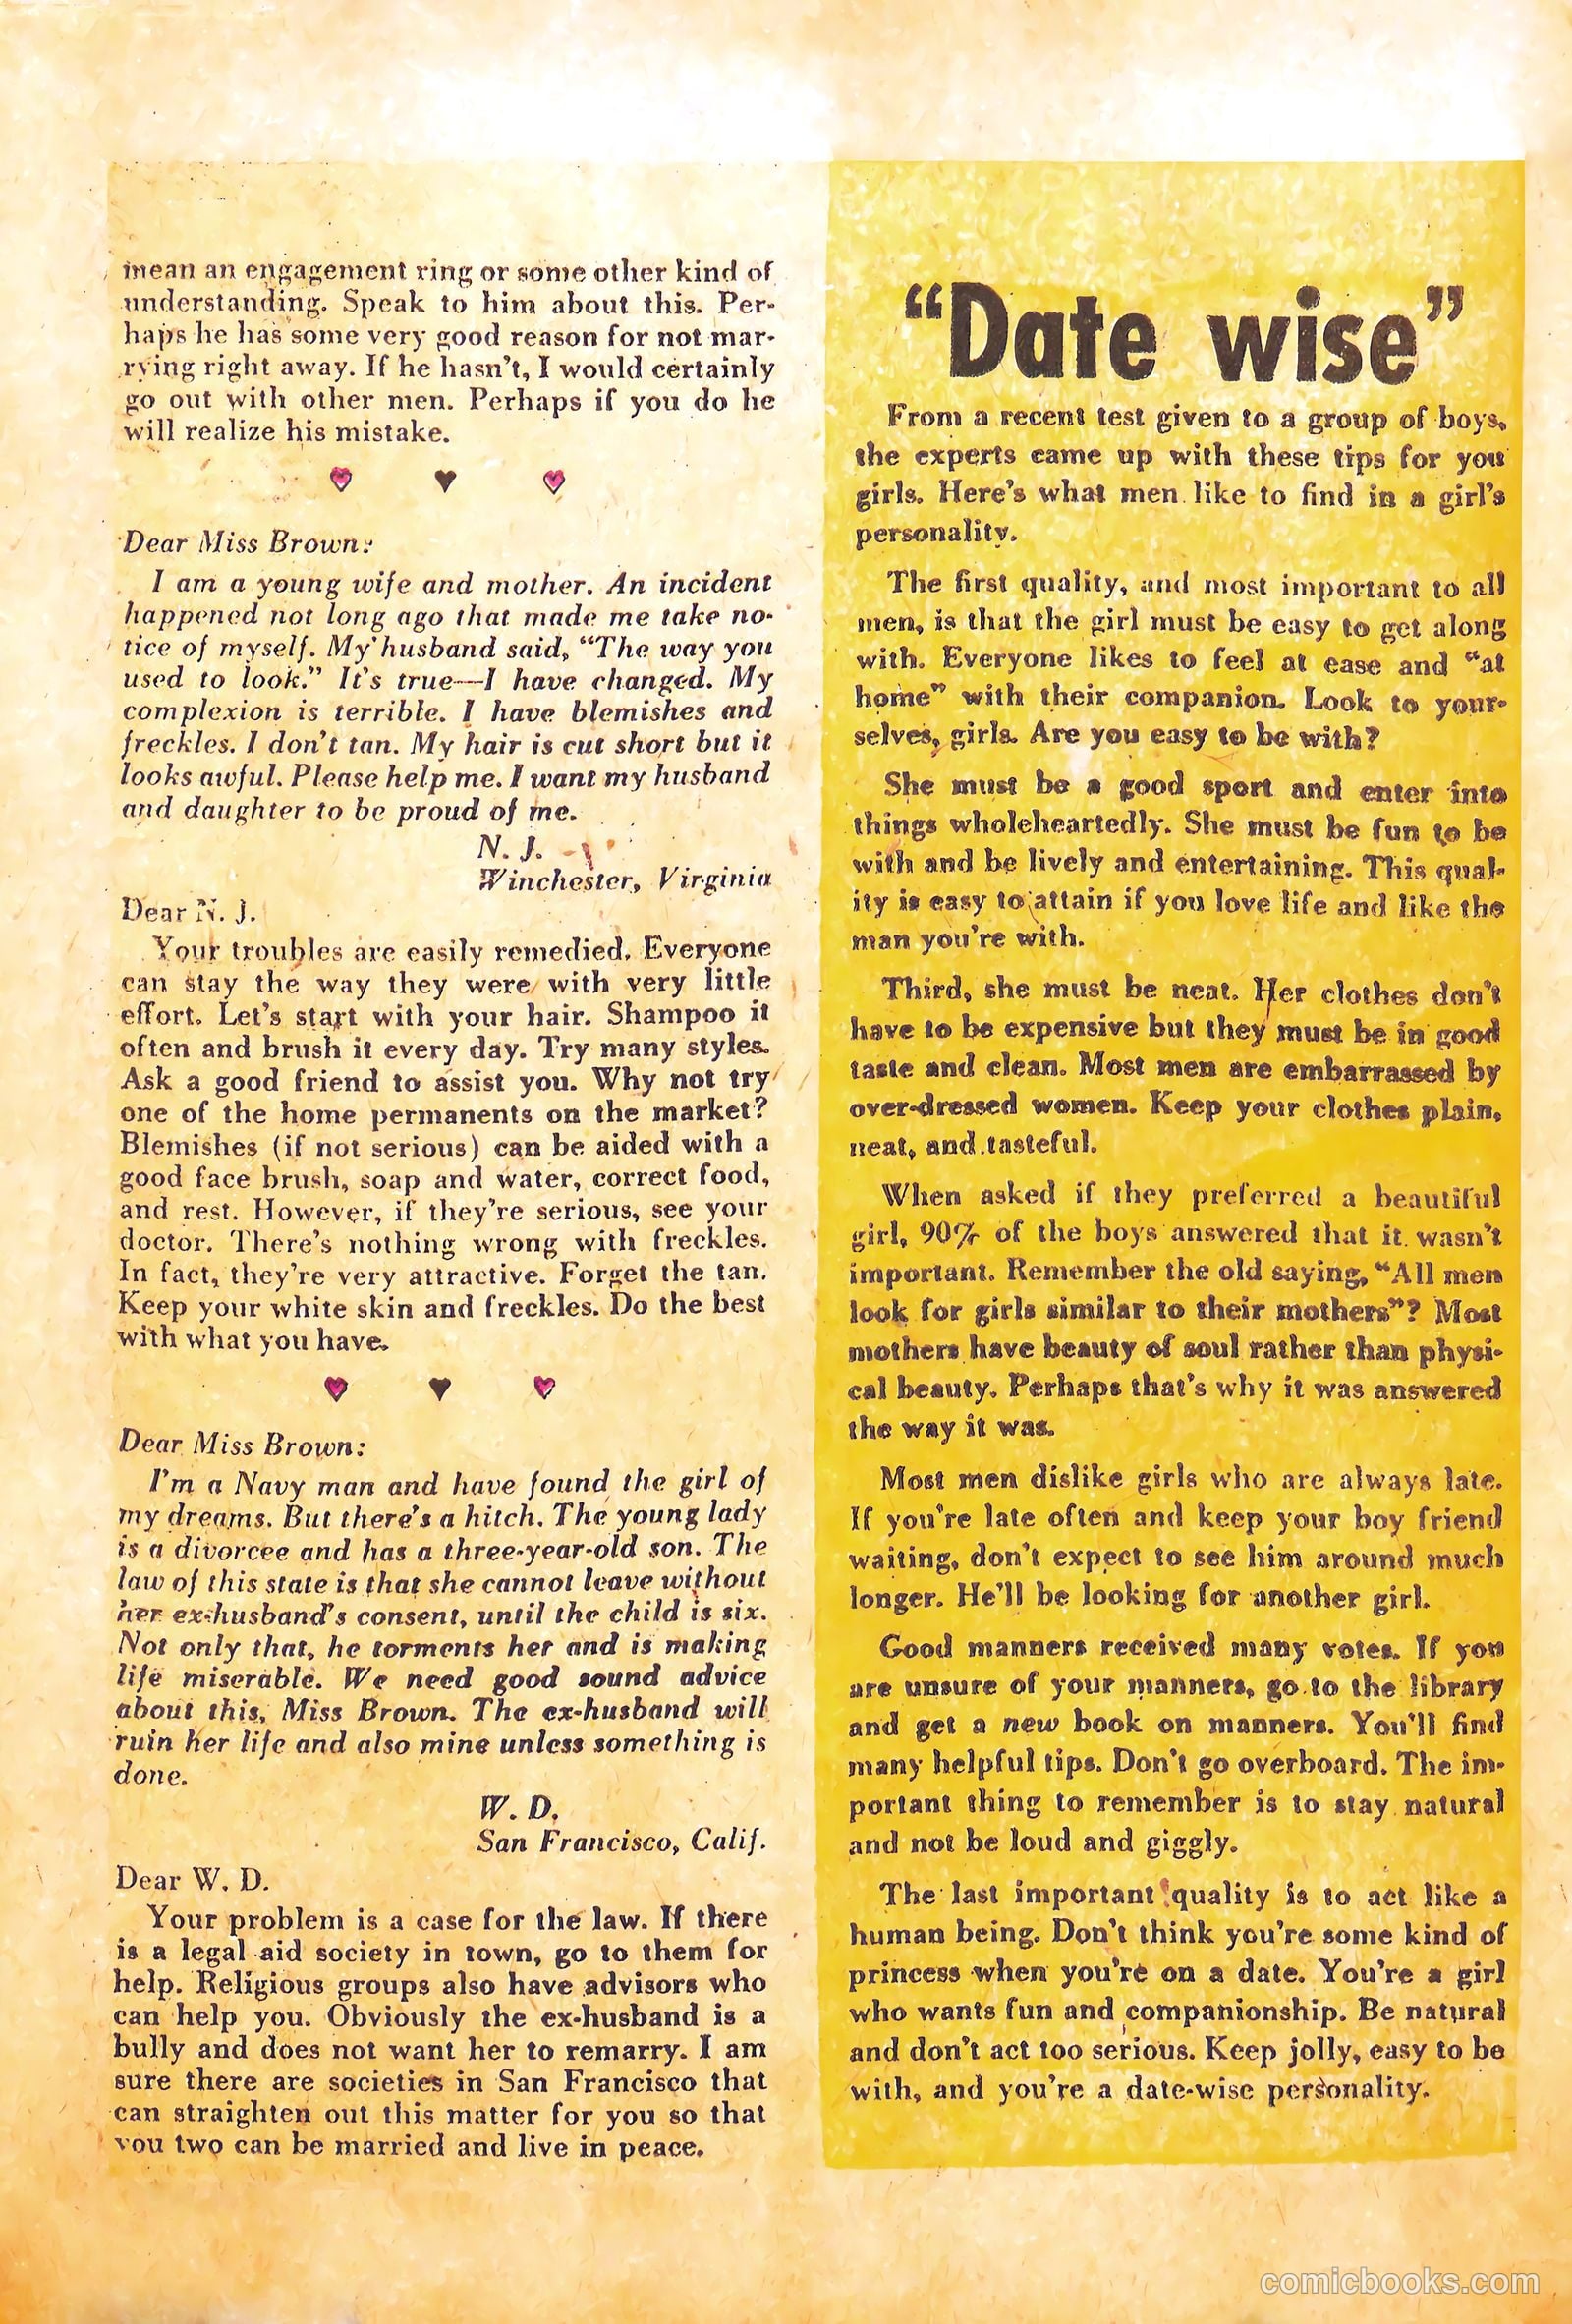 mean an engagement ring or some other kind of
understanding. Speak to him about this. Per-
haps he has some very good reason for not mar-
rying right away. If he hasn't, I would certainly
go out with other men. Perhaps if you do he
will realize his mistake.
Dear Miss Brown:
I am a young wife and mother. An incident
happened not long ago that made me take no-
tice of myself. My husband said, "The way you
used to look." It's true—I have changed. My
complexion is terrible. I have blemishes and
freckles. I don't tan. My hair is cut short but it
looks awful. Please help me. I want my husband
and daughter to be proud of me.
N. J.
Winchester, Virginia
Dear N. J.
Your troubles are easily remedied. Everyone
can stay the way they were with very little
effort. Let's start with your hair. Shampoo it
often and brush it every day. Try many styles.
Ask a good friend to assist you. Why not try
one of the home permanents on the market?
Blemishes (if not serious) can be aided with a
good face brush, soap and water, correct food,
and rest. However, if they're serious, see your
doctor. There's nothing wrong with freckles.
In fact, they're very attractive. Forget the tan.
Keep your white skin and freckles. Do the best
with what you have.
Dear Miss Brown:
I'm a Navy man and have found the girl of
my dreams. But there's a hitch. The young lady
is a divorcee and has a three-year-old son. The
law of this state is that she cannot leave without
her ex-husband's consent, until the child is six.
Not only that, he torments her and is making
life miserable. We need good sound advice
about this, Miss Brown. The ex-husband will
ruin her life and also mine unless something is
done.
W. D.
San Francisco, Calif.
Dear W. D.
Your problem is a case for the law. If there
is a legal aid society in town, go to them for
help. Religious groups also have advisors who
can help you. Obviously the ex-husband is a
bully and does not want her to remarry. I am
sure there are societies in San Francisco that
can straighten out this matter for you so that
you two can be married and live in peace.
"Date wise"
From a recent test given to a group of boys,
the experts came up with these tips for you
girls. Here's what men like to find in a girl's
personality.
The first quality, and most important to all
men, is that the girl must be easy to get along
with. Everyone likes to feel at ease and "at
home" with their companion. Look to your-
selves, girls. Are you easy to be with?
She must be a good sport and enter into
things wholeheartedly. She must be fun to be
with and be lively and entertaining. This qual-
ity is easy to attain if you love life and like the
man you're with.
Third, she must be neat. Her clothes don't
have to be expensive but they must be in good
taste and clean. Most men are embarrassed by
over-dressed women. Keep your clothes plain,
neat, and tasteful.
When asked if they preferred a beautiful
girl, 90% of the boys answered that it wasn't
important. Remember the old saying, "All men
look for girls similar to their mothers"? Most
mothers have beauty of soul rather than physi-
cal beauty. Perhaps that's why it was answered
the way it was.
Most men dislike girls who are always late.
If you're late often and keep your boy friend
waiting, don't expect to see him around much
longer. He'll be looking for another girl.
Good manners received many votes. If you
are unsure of your manners, go to the library
and get a new book on manners. You'll find
many helpful tips. Don't go overboard. The im-
portant thing to remember is to stay natural
and not be loud and giggly.
The last important quality is to act like a
human being. Don't think you're some kind of
princess when you're on a date. You're a girl
who wants fun and companionship. Be natural
and don't act too serious. Keep jolly, easy to be
with, and you're a date-wise personality.
comicbooks.com